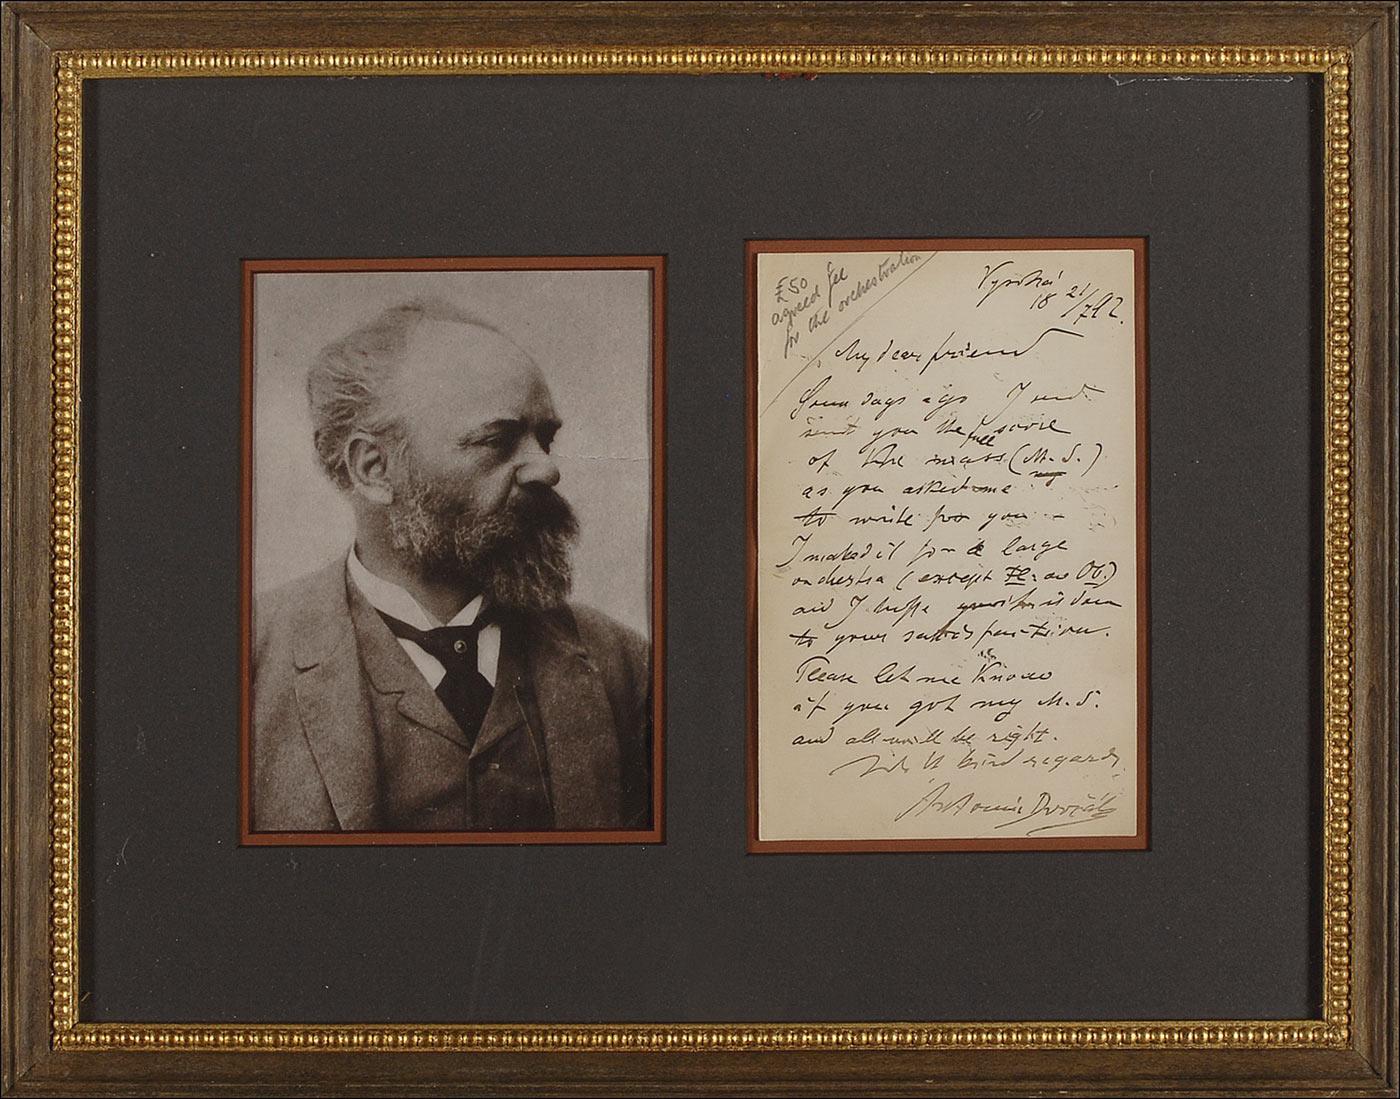 £50
agreed fee
for the orchestration
Vysoká
18 21/7 92.
My dear friend
Some days ago I
sent you the full score
of the mass (M. S.)
as you asked me
to write for you –
I maked it for a large
orchestra (except Fl: an Ob.)
and I hope it is don
to your satisfaction.
Please let me know
if you got my M. S.
and all will be right.
With kind regards
Antonín Dvořák